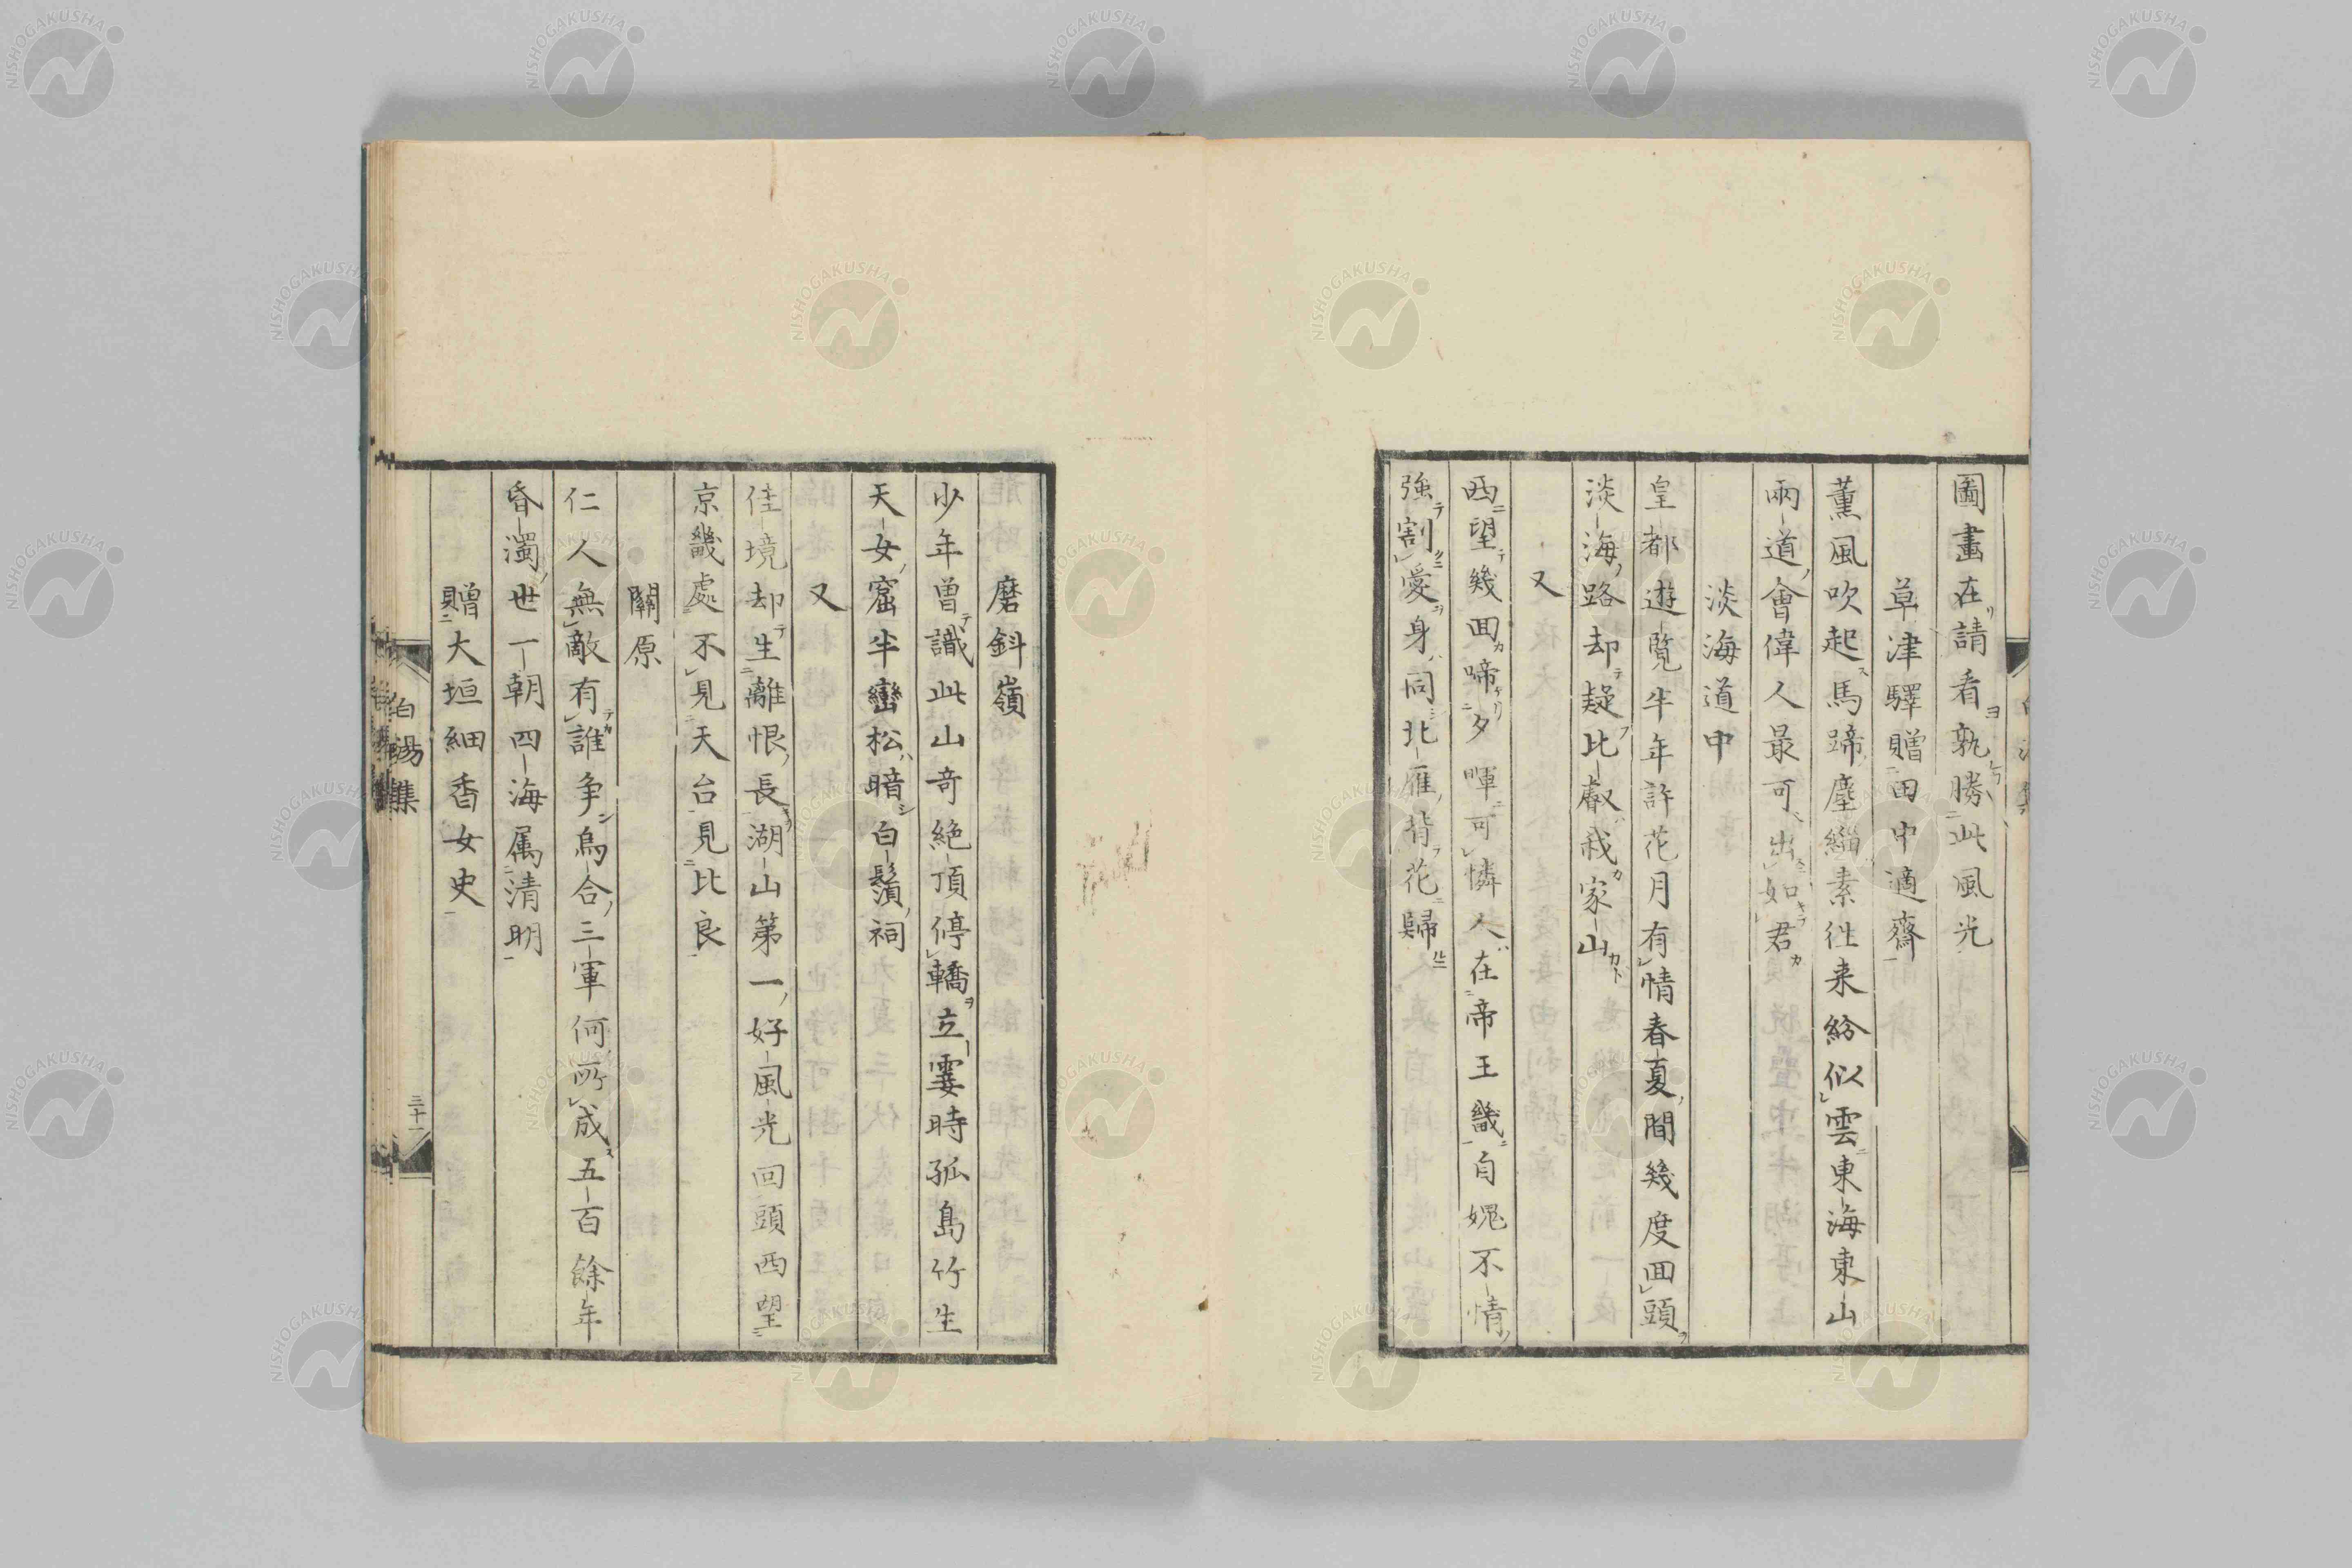 圖畫在請看孰勝此風光
草津驛贈田中適齋
薫風吹起馬蹄塵緇素徃来紛似雲東海東山
兩道會偉人最可出如君
淡海道中
皇都遊覧半年許花月有情春夏間幾度回頭
淡海路却疑比叡我家山
又
西望幾回啼夕暉可憐人在帝王畿自媿不情
強割愛身同北雁背花歸
磨斜嶺
少年曽識此山奇絶頂停轎立霎時孤島竹生
天女窟半巒松暗白鬚祠
又
佳境却生離恨長湖山第一好風光回頭西望
京畿處不見天台見比良
關原
仁人無敵有誰争烏合三軍何所成五百餘年
昏濁世一朝四海属清明
贈大垣細香女史
三十一
NISHOGAKUSHA